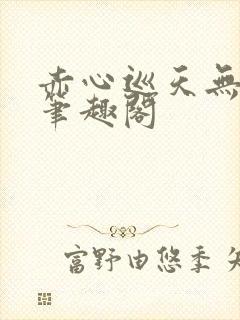 赤心巡天無
筆趣閣
富野由悠季